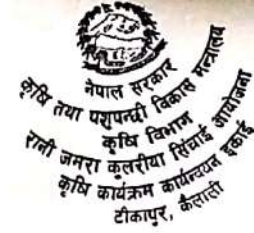 नेपाल सरकार
कृषि तथा पशुपन्छी विकास मन्त्रालय
कृषि विभाग
रानी जमरा कुलरीया सिंचाई आयोजना
कृषि कार्यक्रम कार्यान्वयन इकाई
टीकापुर, कैलाली